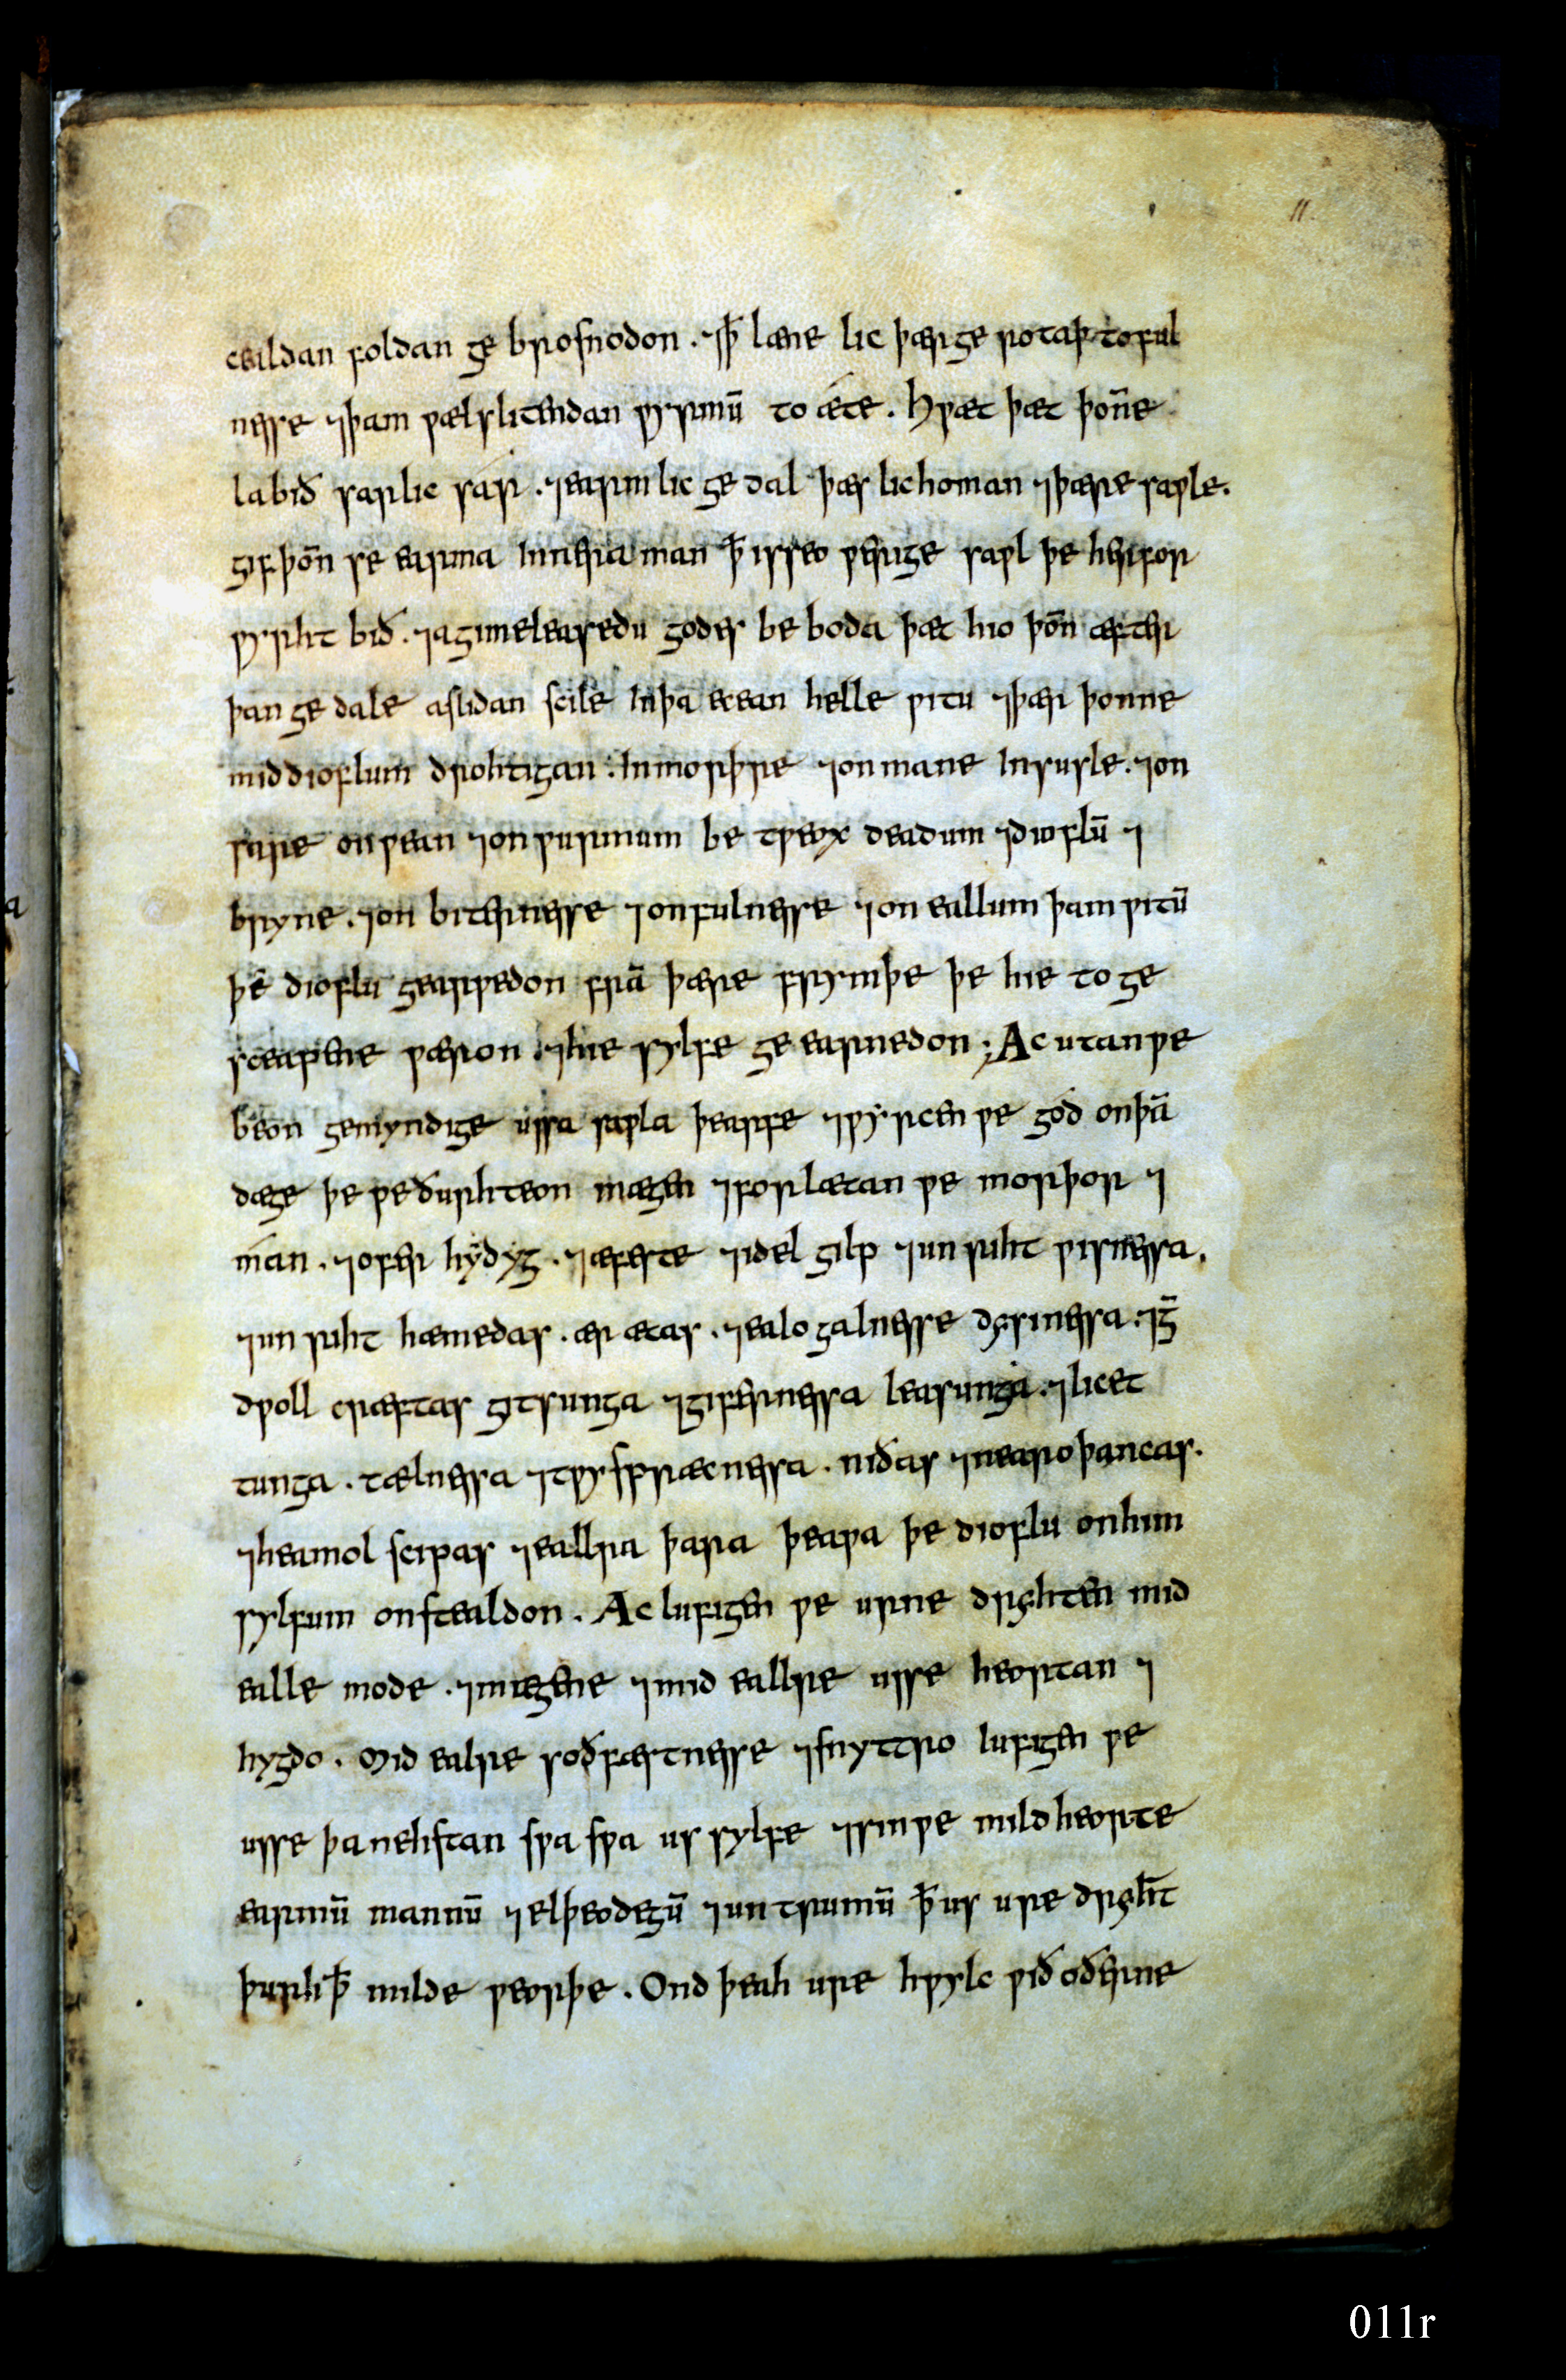 11.
cealdan foldan ge brosnodon . ⁊ꝥ læne lic þær ge rotaþ to ful
nesse ⁊þam ƿælslitendan ƿyrmū to ǽte . Hƿæt þæt þoñe
la bið sarlic sár . ⁊earmlic ge dal þæs lichoman ⁊þære saƿle .
gif þōn se earma innera man ꝥ is seo ƿerige saƿl þe her for
ƿyrht bið . ⁊agimeleasedu godes be boda þæt hio þōn æfter
þan ge dale aslidan scile in þa ecean helle ƿitu ⁊þær þonne
mid dioflum drohtigan . in morþre ⁊on mane in susle . ⁊on
sare on ƿean ⁊on ƿurmum be tƿeox deadum ⁊dioflū ⁊
bryne . ⁊on biternesse ⁊on fulnesse ⁊on eallum þam ƿitū
þe dioflu gearƿedon frā þære frymþe þe hie to ge
sceaƿene ƿæron . ⁊hie sylfe ge earnedon ; Ac utan ƿe
beon gemyndige ussa saƿla þearfe ⁊ƿyrcen ƿe gód on þā
dæge þe ƿe ðurhteon mægen ⁊forlætan ƿe morþor ⁊
mán . ⁊ofer hydyg . ⁊æfeste ⁊idel gilp ⁊unriht ƿisnessa .
⁊un riht hæmedas . ær ætas . ⁊ealo galnesse dysinessa . ⁊ḡ
dƿoll cræftas gitsunga ⁊gifernessa leasunga . ⁊licet
tunga . tælnessa ⁊tƿyspræcnessa . niðas ⁊nearo þancas .
⁊heamol scipas ⁊ealra þara þeaƿa þe dioflu on him
sylfum onstealdon . Ac lufigen ƿe urne dryhten mid
ealle mode . ⁊mægene ⁊mid eallre usse heortan ⁊
hygdo . Mid ealre soðfæstnesse ⁊snyttro lufigen ƿe
usse þa nehstan sƿa sƿa us sylfe ⁊sin ƿe mildheorte
earmū mannū ⁊elþeodegū ⁊un trumū ꝥ us ure dryht̄
þurh ꝥ milde ƿeorþe . Ond þeah ure hƿylc ƿið oðerne
011r